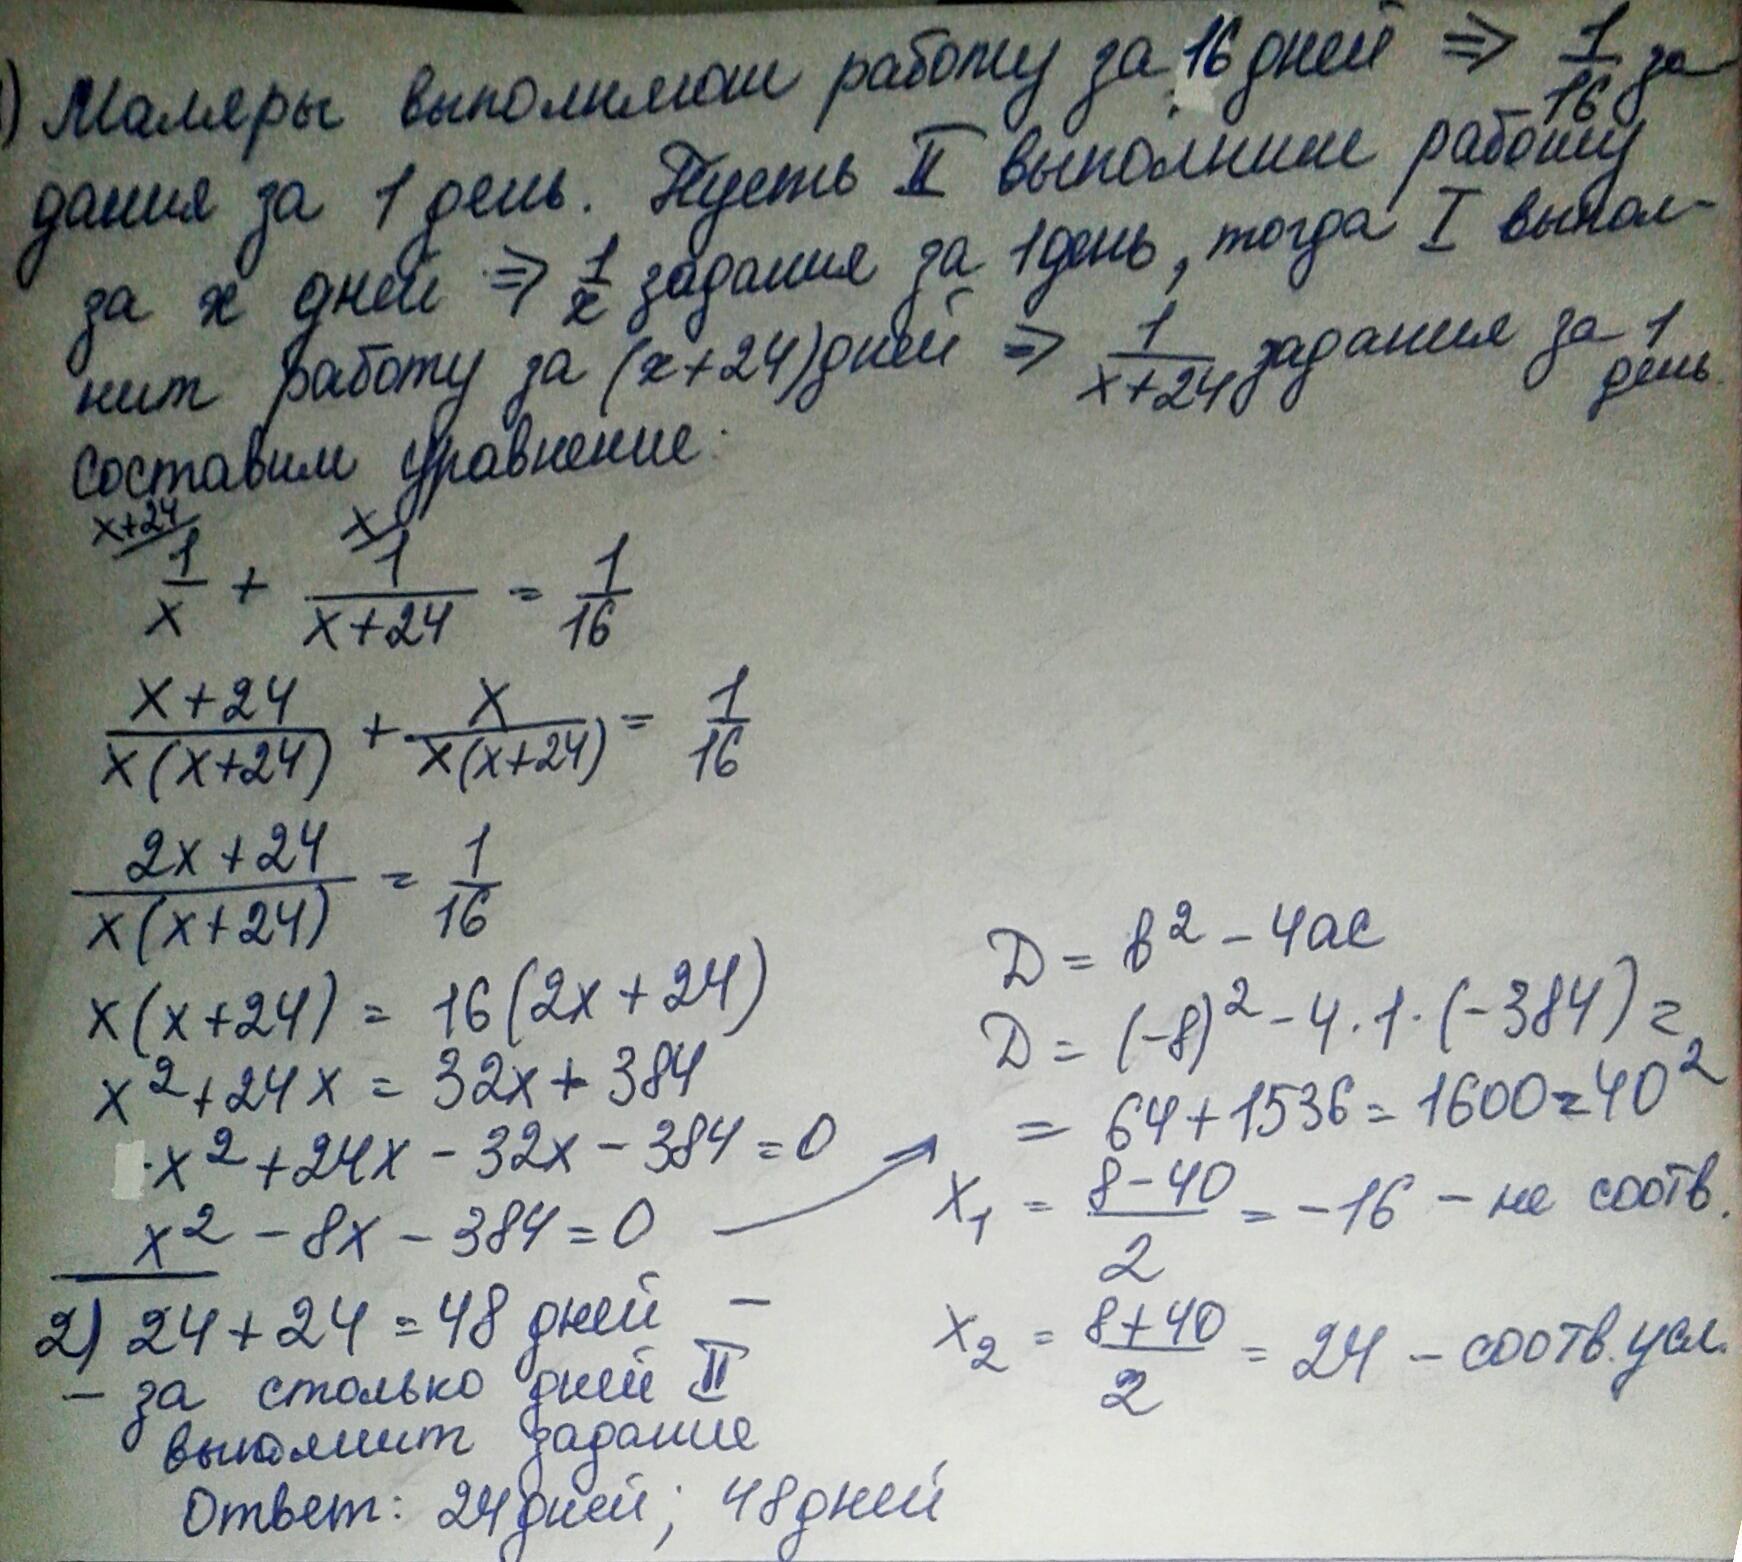 1) Маляры выполняют работу за 16 дней ⇒ 1/16 за-
дания за 1 день. Пусть II выполнит работу
за x дней ⇒ 1/x задания за 1 день, тогда I выпол-
нит работу за (x+24) дней ⇒ 1/(x+24) задания за 1 день.
Составим уравнение:
x+24/ 1/x + x/ 1/(x+24) = 1/16
(x+24)/(x(x+24)) + x/(x(x+24)) = 1/16
(2x+24)/(x(x+24)) = 1/16
x(x+24) = 16(2x+24)
x² + 24x = 32x + 384
x² + 24x - 32x - 384 = 0
x² - 8x - 384 = 0 →
D = b² - 4ac
D = (-8)² - 4·1·(-384) =
= 64 + 1536 = 1600 = 40²
x₁ = (8-40)/2 = -16 - не соотв.
x₂ = (8+40)/2 = 24 - соотв. усл.
2) 24 + 24 = 48 дней -
- за столько дней II
выполнит задание
Ответ: 24 дней; 48 дней